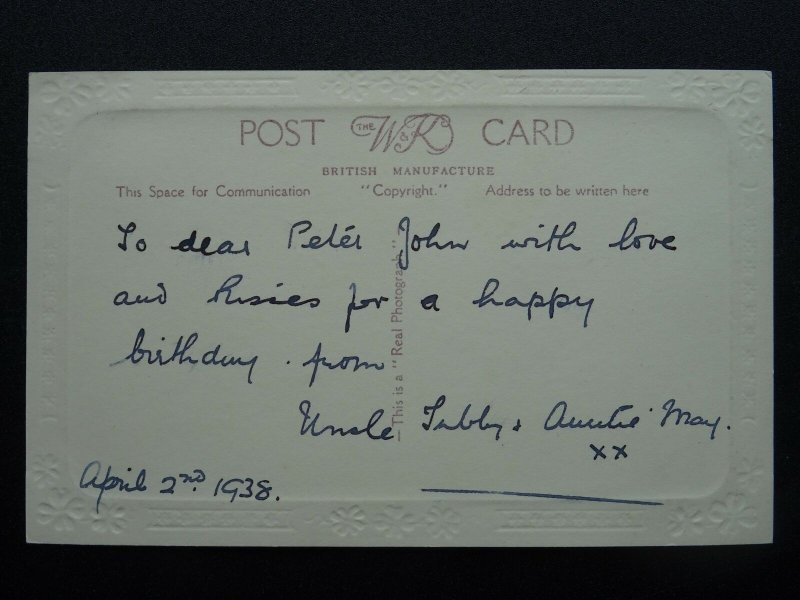 POST THE W&K CARD
BRITISH MANUFACTURE
This Space for Communication "Copyright." Address to be written here
To dear Peter John with love
and kisses for a happy
birthday. from
Uncle Tubby & Auntie May.
xx
April 2nd. 1938.
— This is a "Real Photograph"